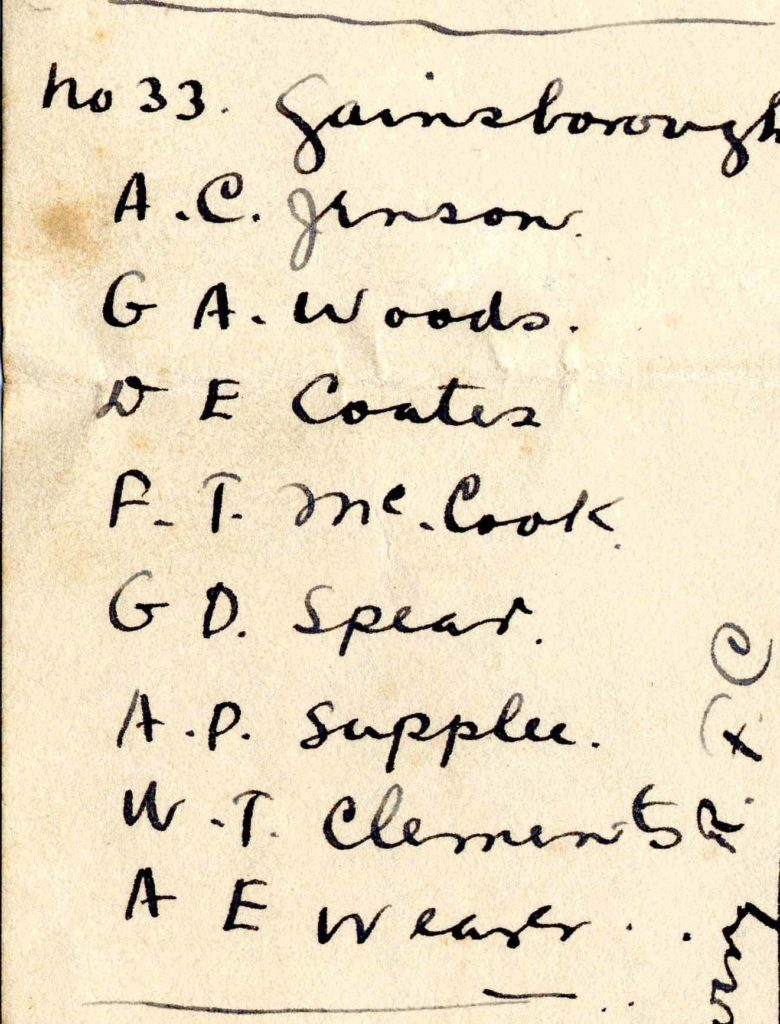 No 33. Gainsborough
A. C. Jenson.
G A. Woods.
D E Coates
F. T. McCook.
G D. Spear.
A. P. Supplee.
W. T. Clements
A E Weaver..